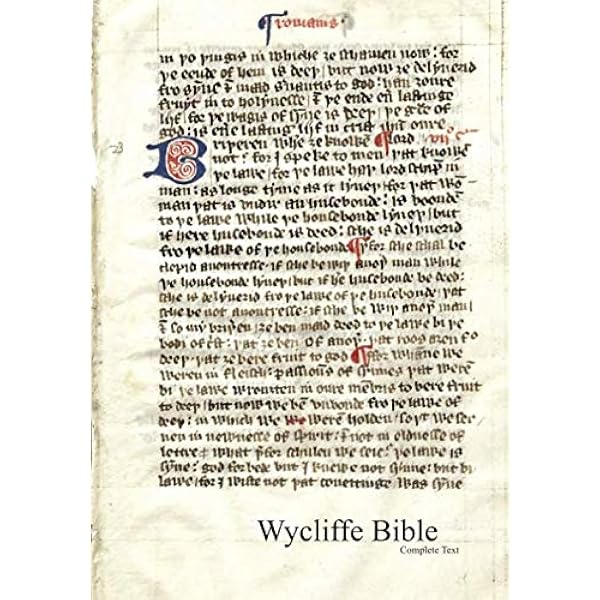 Romanis
in þo þingis in whiche ȝe schamen now: for
þe eende of hem is deeþ/ but now ȝe delyuerid
fro synne ⁊ maad to god: han ȝoure
fruyt in to holynesse/ ⁊ þe ende lastinge
lijf/ for þe wagis of syne is deeþ/ þe of
god: is lasting lijf in oure
23 Briþeren ȝe knowen ¶lord
not: for I speke to men þat knowen
þe lawe/ for þe lawe haþ lordschip in
man: as longe tyme as it lyueþ/ for þat wom
man þat is vndir an husebonde: is bounden
to þe lawe while þe housebonde lyueþ/ but
if hire husebonde is deed: sche is delyuerid
fro þe lawe of þe housebonde ¶þfor sche schal be
clepid auoutresse: if sche be wiþ anoþ man while
þe housebonde lyueþ/ but if hir husebonde be deed:
sche is delyuerid fro þe lawe of þe husebonde/ þat
sche be not auoutresse: if sche be wiþ anoþ man/
⁊ so my briþen/ ȝe ben maad deed to þe lawe bi þe
bodi of c̅t: þat ȝe ben of anoþ. þat roos aȝen fro
deeþ. þat ȝe bere fruit to god ¶ffor whāne we
weren in fleisch: passiouns of synnes þat weren
bi þe lawe wrouȝten in oure membris to bere fruit
to deeþ/ but now we ben vnbonde fro þe lawe of
deeþ: in which we weren holden/ so þt we ser
uen in newnesse of spirit: ⁊ not in oldnesse of
lettre ¶ what þfor schulen we seie: þe lawe is
syne: god forbede but I knewe not synne: but bi
lawe/ for I wiste not þat coueitinge was syne
Wycliffe Bible
Complete Text